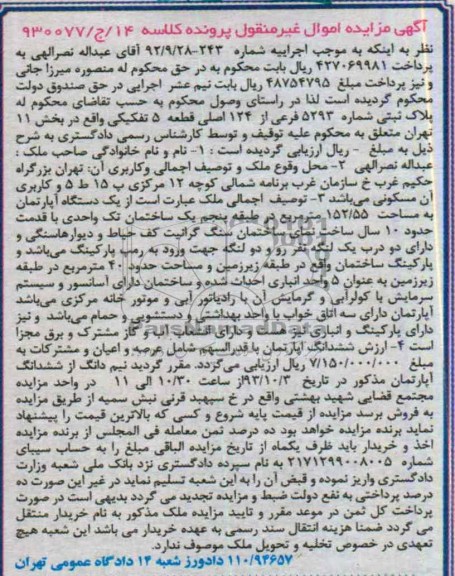 آگهی مزایده اموال غیرمنقول پرونده کلاسه ۱۴/ج/۹۳۰۰۷۷
نظر به اینکه به موجب اجراییه شماره ۲۴۳-۹۲/۹/۲۸ آقای عبداله نصرالهی به
پرداخت ۴۲۷۰۶۹۹۸۱ ریال بابت محکوم به در حق محکوم له منصوره میرزا جانی
و نیز پرداخت مبلغ ۴۸۷۵۴۷۹۵ ریال بابت نیم عشر اجرایی در حق صندوق دولت
محکوم گردیده است لذا در راستای وصول محکوم به حسب تقاضای محکوم له
پلاک ثبتی شماره ۵۲۹۳ فرعی از ۱۲۴ اصلی قطعه ۵ تفکیکی واقع در بخش ۱۱
تهران متعلق به محکوم علیه توقیف و توسط کارشناس رسمی دادگستری به شرح
ذیل به مبلغ - ریال ارزیابی گردیده است : ۱- نام و نام خانوادگی صاحب ملک :
عبداله نصرالهی ۲- محل وقوع ملک و توصیف اجمالی وکاربری آن: تهران بزرگراه
حکیم غرب خ سازمان غرب برنامه شمالی کوچه ۱۲ مرکزی پ ۱۵ ط ۵ و کاربری
آن مسکونی می‌باشد ۳- توصیف اجمالی ملک عبارت است از یک دستگاه آپارتمان
به مساحت ۱۵۲/۵۵ مترمربع در طبقه پنجم یک ساختمان تک واحدی با قدمت
حدود ۱۰ سال ساخت نمای ساختمان سنگ گرانیت کف حیاط و دیوارهاسنگی و
دارای دو درب یک لنگه نفر رو و دو لنگه جهت ورود به پارکینگ می‌باشد و
پارکینگ ساختمان واقع در طبقه زیرزمین و مساحت حدود ۴۰ مترمربع در طبقه
زیرزمین به عنوان ۵ واحد انباری احداث شده و ساختمان دارای آسانسور و سیستم
سرمایش با کولرآبی و گرمایش آن با رادیاتور آبی و موتور خانه مرکزی می‌باشد
آپارتمان دارای سه اتاق خواب با واحد بهداشتی و دستشویی و حمام می‌باشد و نیز
دارای پارکینگ و انباری نیز می‌باشد و دارای انشعاب آب و گاز مشترک و برق مجزا
است ۴- ارزش ششدانگ آپارتمان با قدرالسهم شامل عرصه و اعیان و مشترکات به
مبلغ ۷/۱۵۰/۰۰۰/۰۰۰ ریال ارزیابی می‌گردد. مقرر گردید نیم دانگ از ششدانگ
آپارتمان مذکور در تاریخ ۹۳/۱۰/۳از ساعت ۱۰/۳۰ الی ۱۱ در واحد مزایده
مجتمع قضایی شهید بهشتی واقع در خ سپهبد قرنی نبش سمیه از طریق مزایده
به فروش برسد مزایده از قیمت پایه شروع و کسی که بالاترین قیمت را پیشنهاد
نماید برنده مزایده خواهد بود ده درصد ثمن معامله فی المجلس از برنده مزایده
اخذ و خریدار باید ظرف یکماه از تاریخ مزایده الباقی مبلغ را به حساب سیبای
شماره ۲۱۷۱۲۹۹۰۰۸۰۰۵ به نام سپرده دادگستری نزد بانک ملی شعبه وزارت
دادگستری واریز نموده و قبض آن را به این شعبه تسلیم نماید در غیر این صورت ده
درصد پرداختی به نفع دولت ضبط و مزایده تجدید می گردد بدیهی است در صورت
پرداخت کل ثمن در موعد مقرر و تایید مزایده ملک مذکور به نام خریدار منتقل
می گردد ضمنا هزینه انتقال سند رسمی به عهده خریدار می باشد این شعبه هیچ
تعهدی در خصوص تخلیه و تحویل ملک موصوف ندارد.
۱۱۰/۹۴۶۵۷ دادورز شعبه ۱۴ دادگاه عمومی تهران